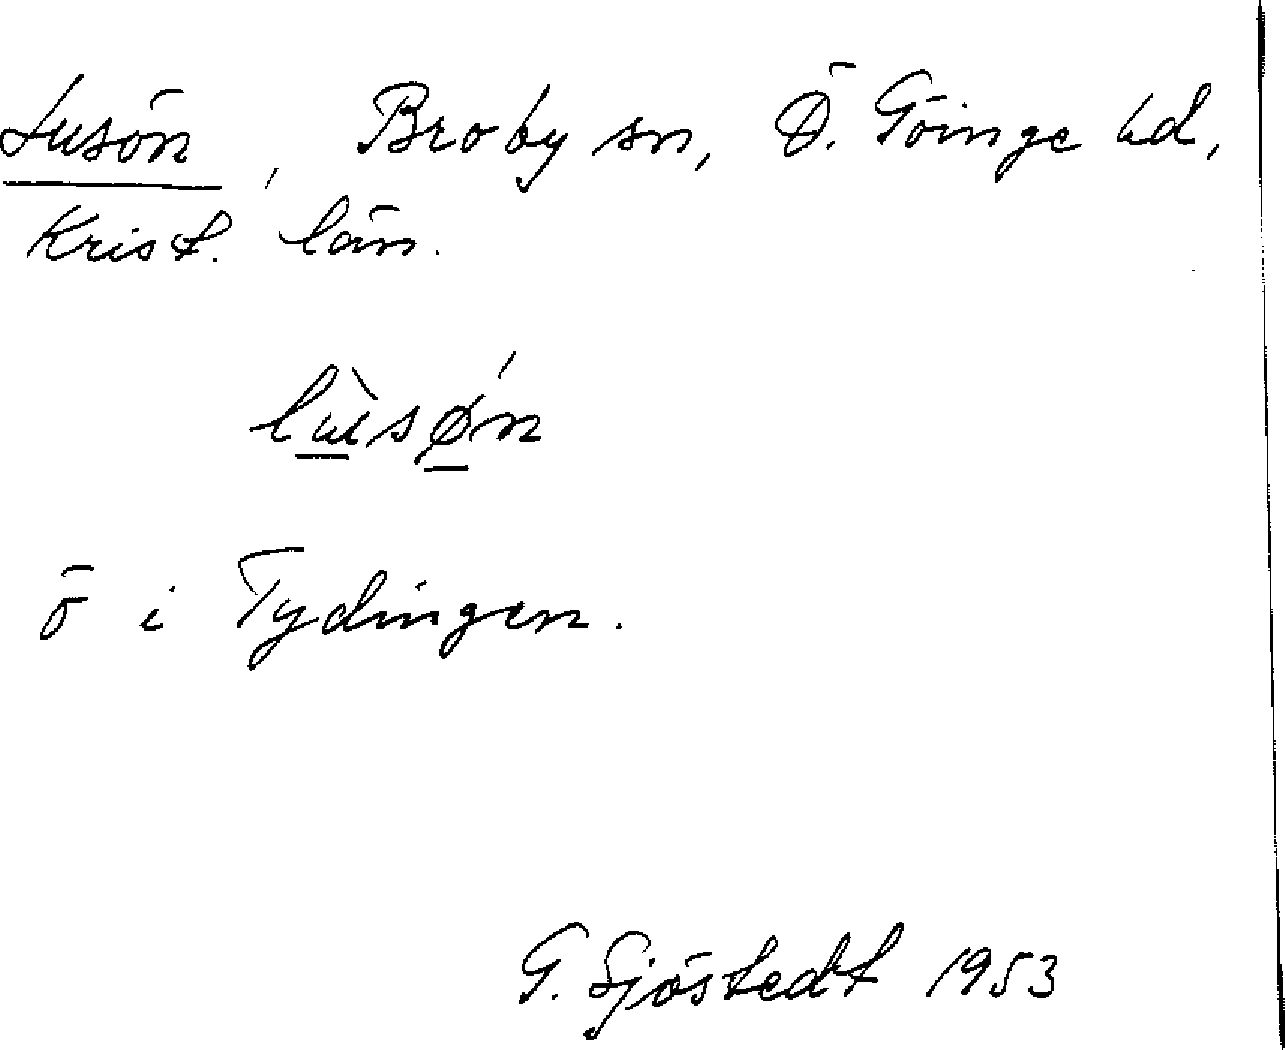 Lusön, Broby sn, Ö. Göinge hd,
Krist. län.
lùsǿn
ö i Tydingen.
G. Sjöstedt 1953